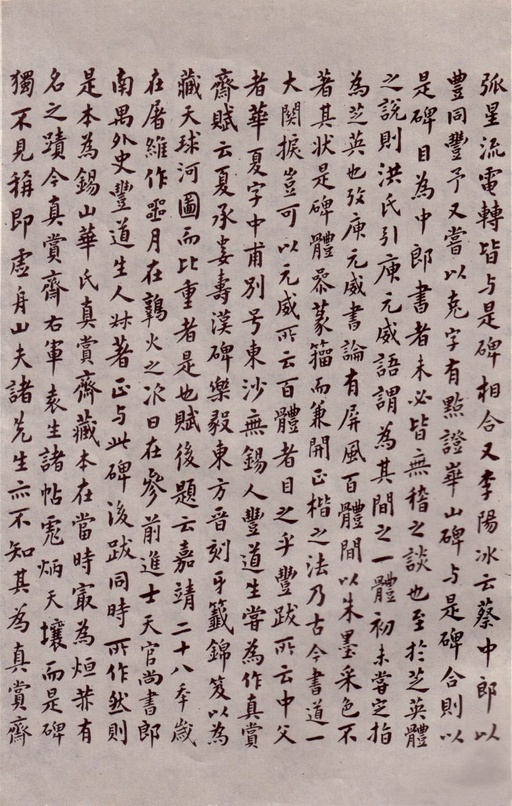 弧星流電轉皆与是碑相合又李陽冰云蔡中郎以
豐同豐予又嘗以袁字有點證崋山碑与是碑合則以
是碑目為中郎書者未必皆無稽之談也至於芝英體
之說則洪氏引庾元威語謂為其間之一體初未嘗定指
為芝英也攷庾元威書論有屏風百體間以朱墨采色不
著其狀是碑體叅篆籀而兼開正楷之法乃古今書道一
大関捩豈可以元威所云百體者目之乎豐跋所云中父
者華夏字中甫別号東沙無錫人豐道生嘗為作真賞
齋賦云夏承婁壽漢碑樂毅東方晋刻牙籤錦笈以為
藏天球河圖而比重者是也賦後題云嘉靖二十八年歲
在屠維作噩月在鶉火之次日在參前進士天官尚書郎
南禺外史豐道生人叔著正与此碑後跋同時所作然則
是本為錫山華氏真賞齋藏本在當時寂為烜赫有
名之蹟今真賞齋右軍袁生諸帖寃炳天壤而是碑
獨不見稱即虛舟山夫諸先生亦不知其為真賞齋